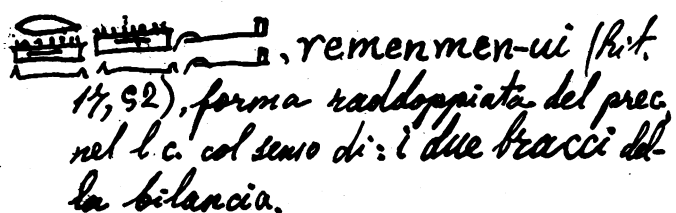 , remenmen-ui (Rit.
17, 52), forma raddoppiata del prec.
nel l.c. col senso di: i due bracci del-
la bilancia.